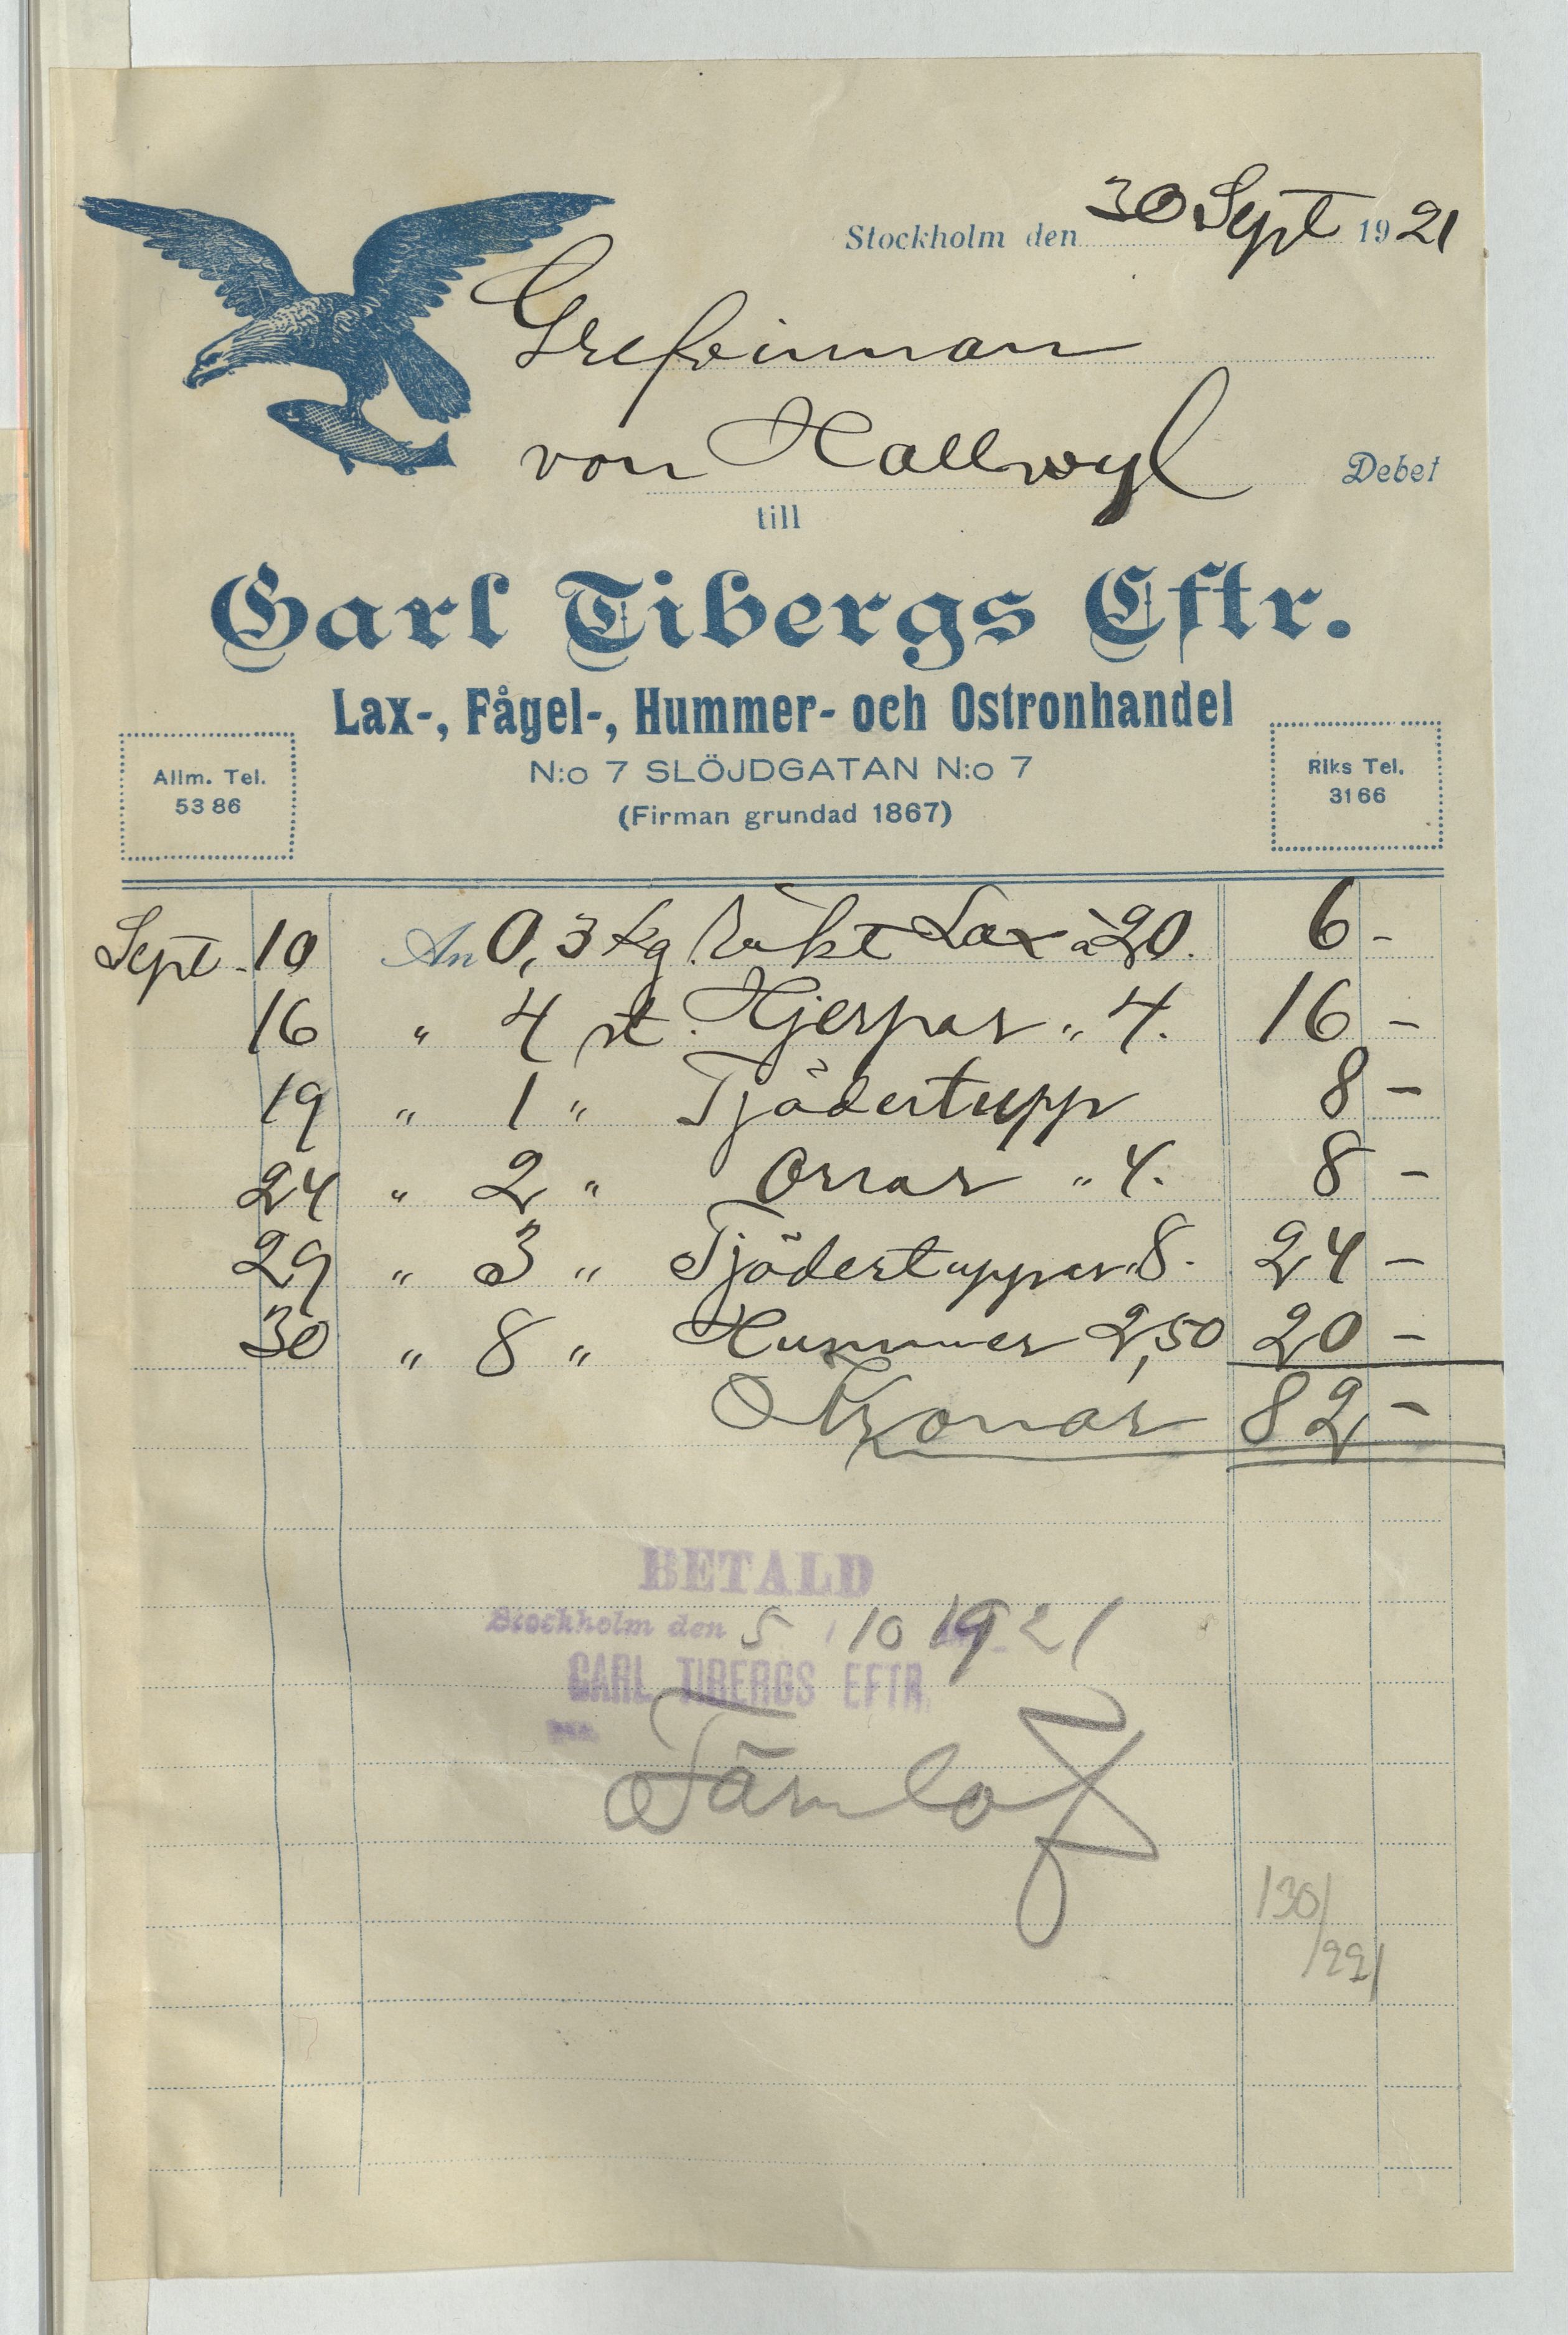 Stockholm den 30 Sept 1921
Grefvinnan
von Hallwyl Debet
till
Carl Tibergs Eftr.
Lax-, Fågel-, Hummer- och Ostronhandel
N:o 7 SLÖJDGATAN N:o 7
(Firman grundad 1867)
Allm. Tel.
53 86
Riks Tel.
31 66
Sept. 10 An 0,3 kg. Rökt Lax à 20. 6 -
16 " 4 st. Hjerpar " 4. 16 -
19 " 1 " Tjädertupp 8 -
24 " 2 " Orrar " 4. 8 -
29 " 3 " Tjädertuppar " 8. 24 -
30 " 8 " Hummer 2,50 20 -
Kronor 82 -
BETALD
Stockholm den 5 / 10 1921
CARL TIBERGS EFTR.
130/
/221